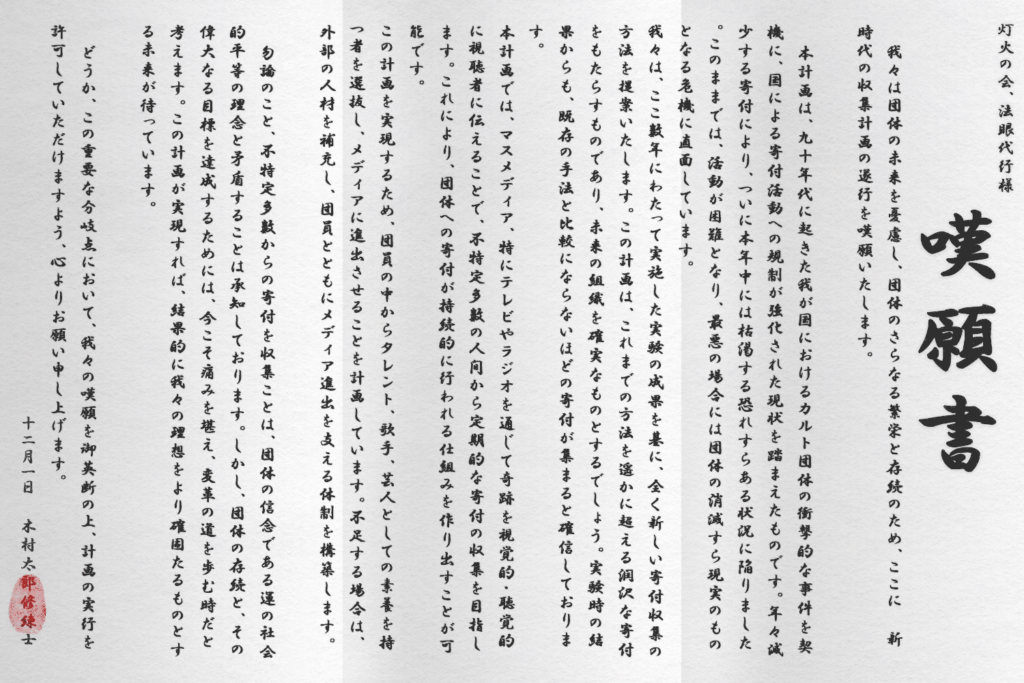 嘆願書
灯火の会、法眼代行様
我々は団体の未来を憂慮し、団体のさらなる繁栄と存続のため、ここに 新
時代の収集計画の遂行を嘆願いたします。
本計画は、九十年代に起きた我が国におけるカルト団体の衝撃的な事件を契
機に、国による寄付活動への規制が強化された現状を踏まえたものです。年々減
少する寄付により、ついに本年中には枯渇する恐れすらある状況に陥りました
。このままでは、活動が困難となり、最悪の場合には団体の消滅すら現実のもの
となる危機に直面しています。
我々は、ここ数年にわたって実施した実験の成果を基に、全く新しい寄付収集の
方法を提案いたします。この計画は、これまでの方法を遥かに超える潤沢な寄付
をもたらすものであり、未来の組織を確実なものとするでしょう。実験時の結
果からも、既存の手法と比較にならないほどの寄付が集まると確信しておりま
す。
本計画では、マスメディア、特にテレビやラジオを通じて奇跡を視覚的・聴覚的
に視聴者に伝えることで、不特定多数の人間から定期的な寄付の収集を目指し
ます。これにより、団体への寄付が持続的に行われる仕組みを作り出すことが可
能です。
この計画を実現するため、団員の中からタレント、歌手、芸人としての素養を持
つ者を選抜し、メディアに進出させることを計画しています。不足する場合は、
外部の人材を補充し、団員とともにメディア進出を支える体制を構築します。
勿論のこと、不特定多数からの寄付を収集ことは、団体の信念である運の社会
的平等の理念と矛盾することは承知しております。しかし、団体の存続と、その
偉大なる目標を達成するためには、今こそ痛みを堪え、変革の道を歩む時だと
考えます。この計画が実現すれば、結果的に我々の理想をより確固たるものとす
る未来が待っています。
どうか、この重要な分岐点において、我々の嘆願を御英断の上、計画の実行を
許可していただけますよう、心よりお願い申し上げます。
十二月一日 木村太郎修練士